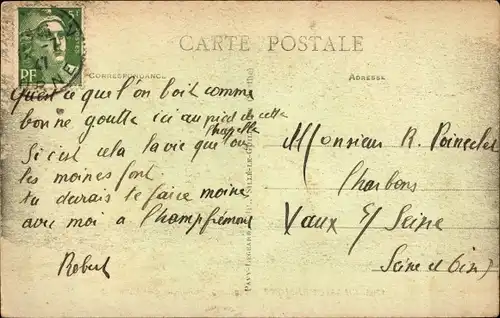 CARTE POSTALE
CORRESPONDANCE
ADRESSE
RF
Qu'est ce que l'on boit comme
bonne goutte ici au pied de cette
Chapelle
Si c'est cela la vie que
les moines font.
tu devrais te faire moine
avec moi a Champfrémont
Robert
Monsieur R. Poincelet
Charbons
Vaux s/ Seine
Seine et Oise